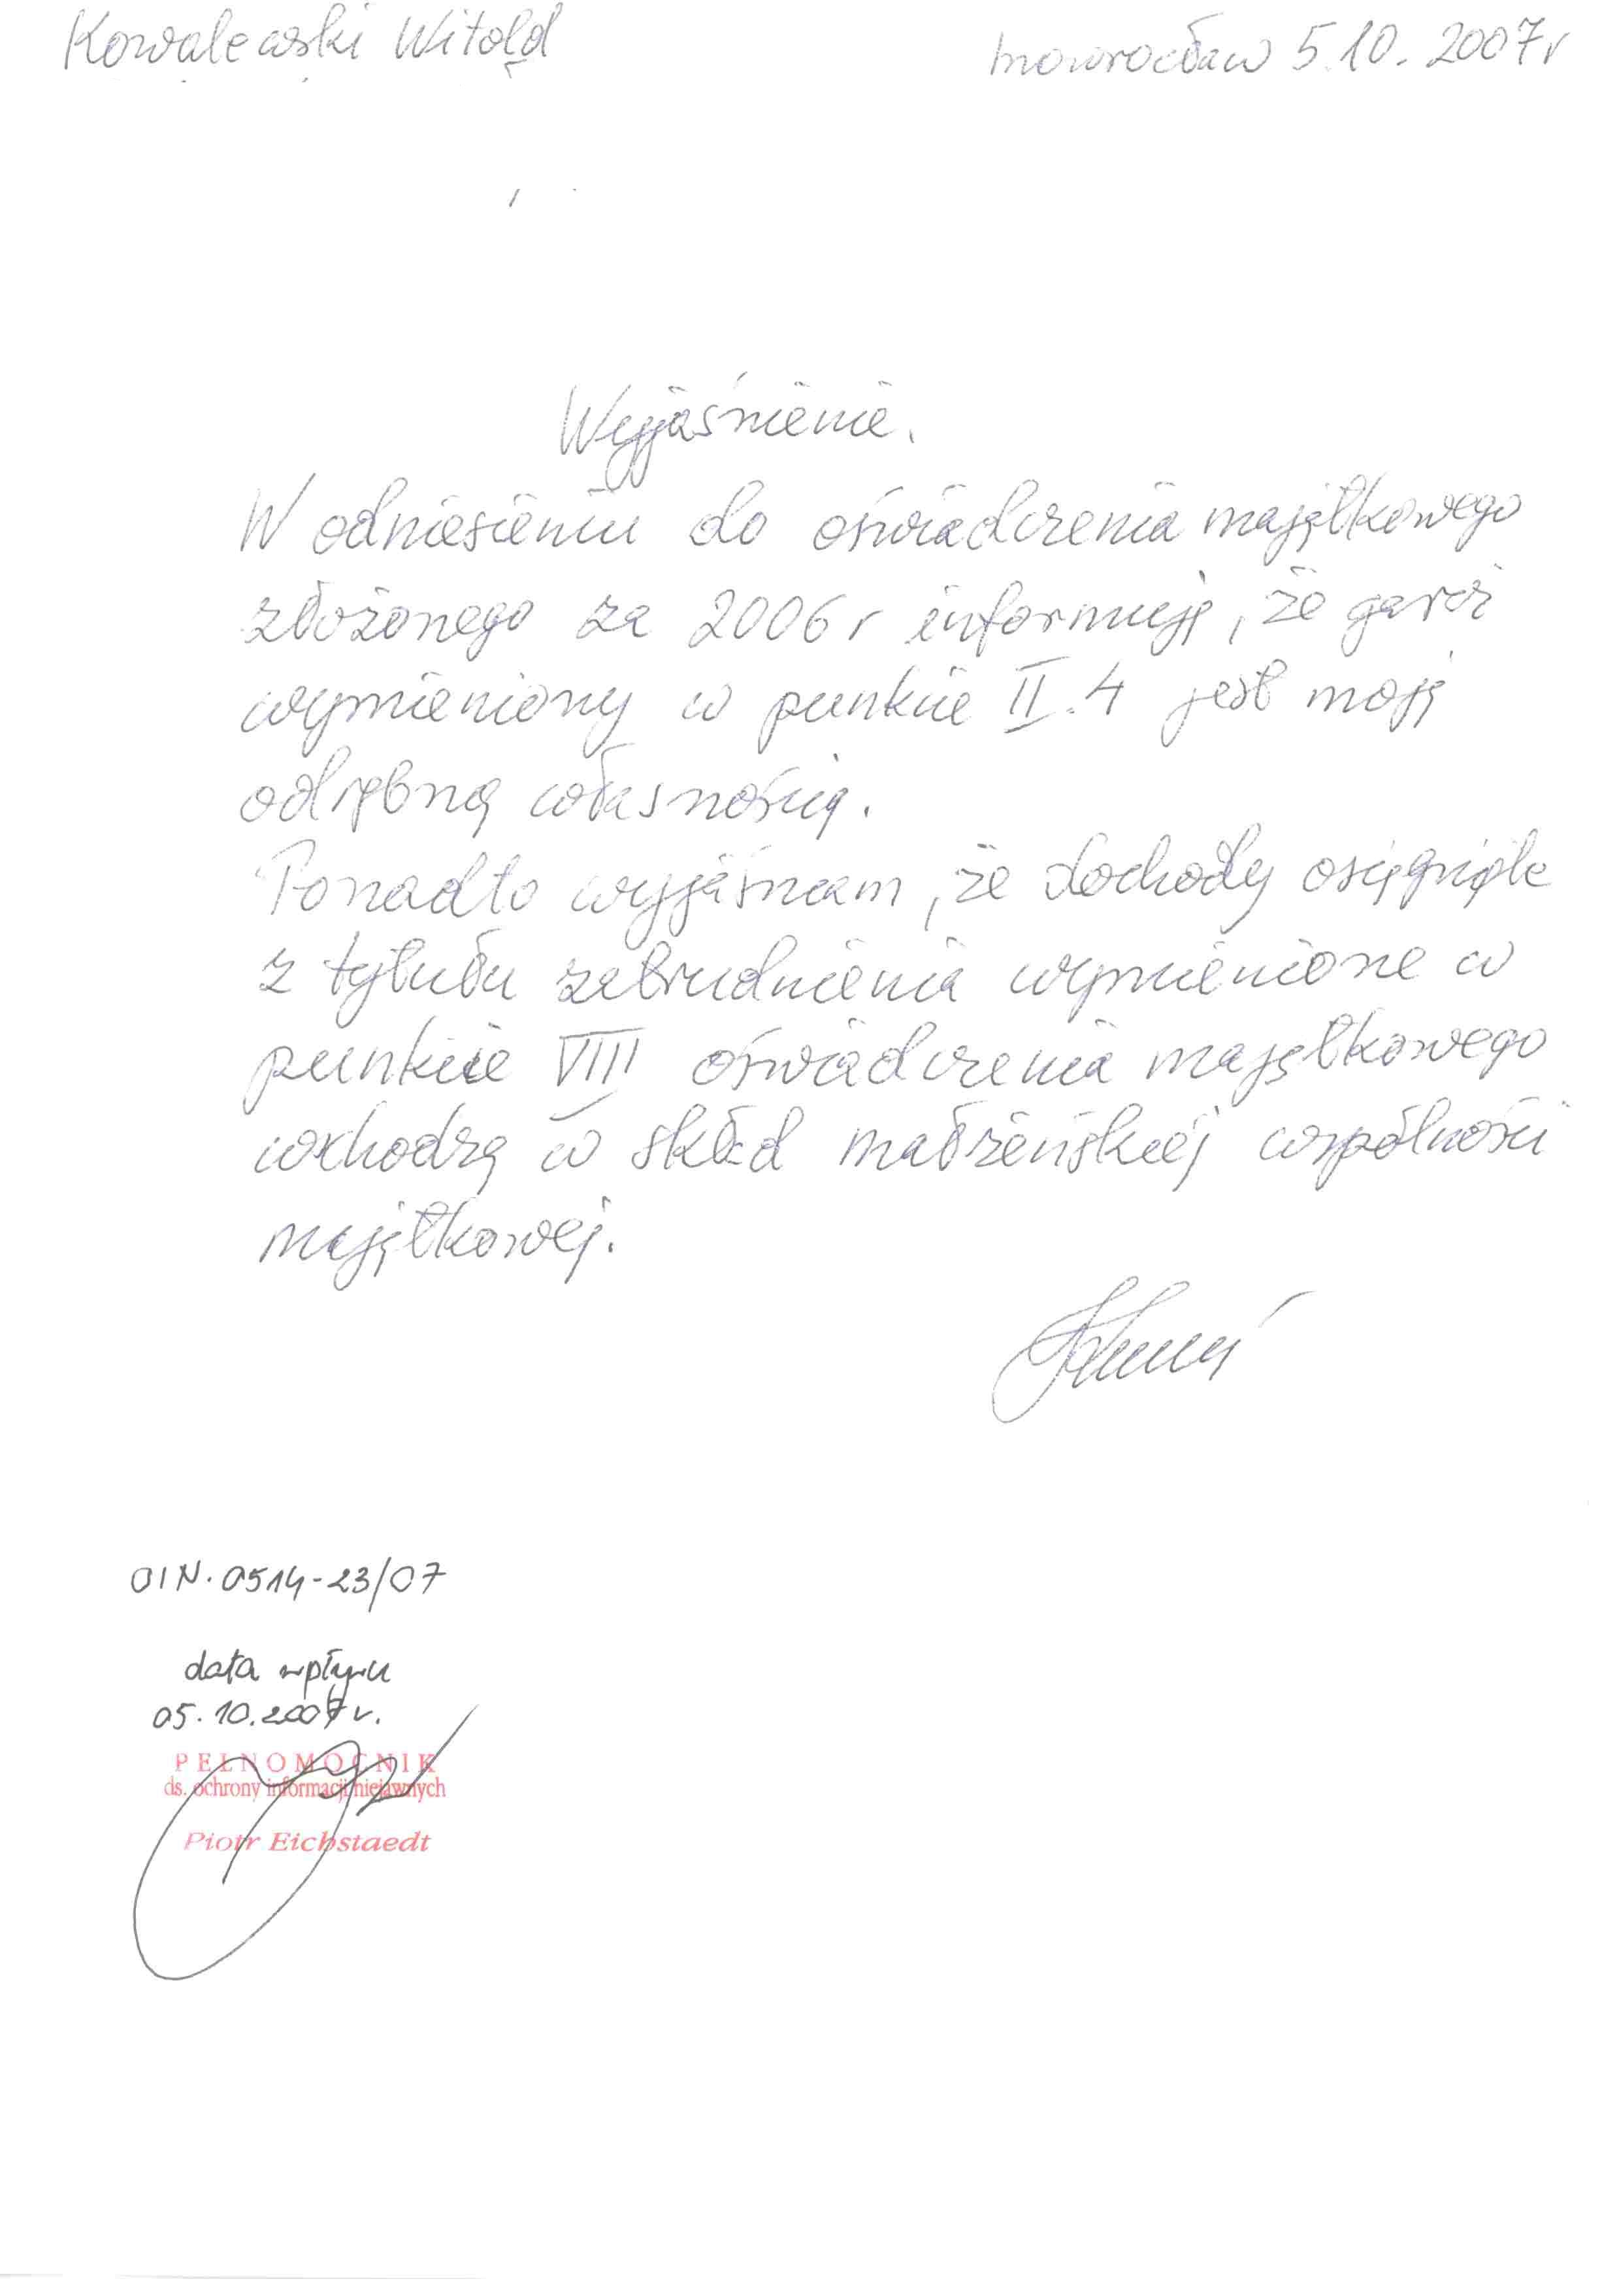 Kowalewski Witold
Inowrocław 5.10.2007r
Wyjaśnienie.
W odniesieniu do oświadczenia majątkowego
złożonego za 2006r informuję, że garaż
wymieniony w punkcie II.4 jest moją
odrębną własnością.
Ponadto wyjaśniam, że dochody osiągnięte
z tytułu zatrudnienia wymienione w
punkcie VIII oświadczenia majątkowego
wchodzą w skład małżeńskiej wspólności
majątkowej.
OIN.0514-23/07
data wpływu
05.10.2007r.
PEŁNOMOCNIK
ds. ochrony informacji niejawnych
Piotr Eichstaedt